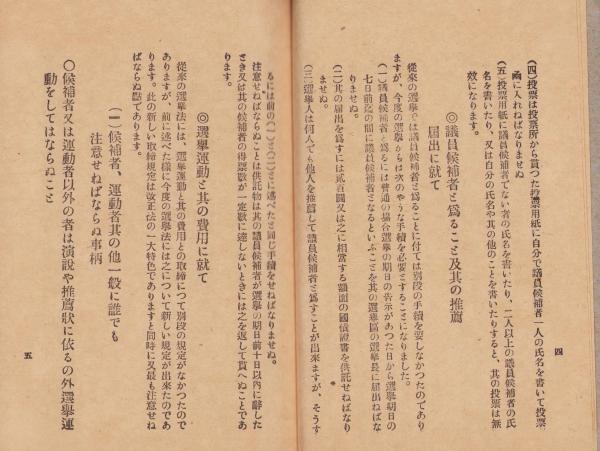 (四)投票は投票所から貰つた投票用紙に自分で議員候補者一人の氏名を書いて投票
函に入れねばなりませぬ
(五)投票用紙に議員候補者でない者の氏名を書いたり、二人以上の議員候補者の氏
名を書いたり、又は自分の氏名や其の他のことを書いたりすると、其の投票は無
效になります。
◎議員候補者と爲ること及其の推薦
届出に就て
從來の選擧では議員候補者と爲ることに付ては別段の手續を要しなかつたのであり
ますが、今度の選擧からは次のやうな手續を必要とすることになりました。
(一)議員候補者と爲るには普通の場合選擧の期日の告示があつた日から選擧期日の
七日前迄の間に議員候補者となるといふことを其の選擧區の選擧長に届出ねばな
りませぬ。
(二)其の届出を爲すには貳百圓又は之に相當する額面の國債證書を供託せねばなり
ませぬ。
(三)選擧人は何人でも他人を推薦して議員候補者と爲すことが出來ますが、そうす
四
るには前の(一)と(二)とに述べたと同じ手續をせねばなりませぬ。
注意せねばならぬことは供託物は其の議員候補者が選擧の期日前十日以内に辭した
とき又は其の候補者の得票數が一定數に達しないときには之を返して貰へぬことであ
ります。
◎選擧運動と其の費用に就て
從來の選擧法には、選擧運動と其の費用との取締につて別段の規定がなかつたので
ありますが、前に述べた様に今度の選擧法には之について新しい規定が出來たのであ
ります。此の新しい取締規定は改正法の一大特色でありますと同時に又最も注意せね
ばならぬ點であります。
(一)候補者、運動者其の他一般に誰でも
注意せねばならぬ事柄
〇候補者又は運動者以外の者は演説や推薦狀に依るの外選擧運
動をしてはならぬこと
五